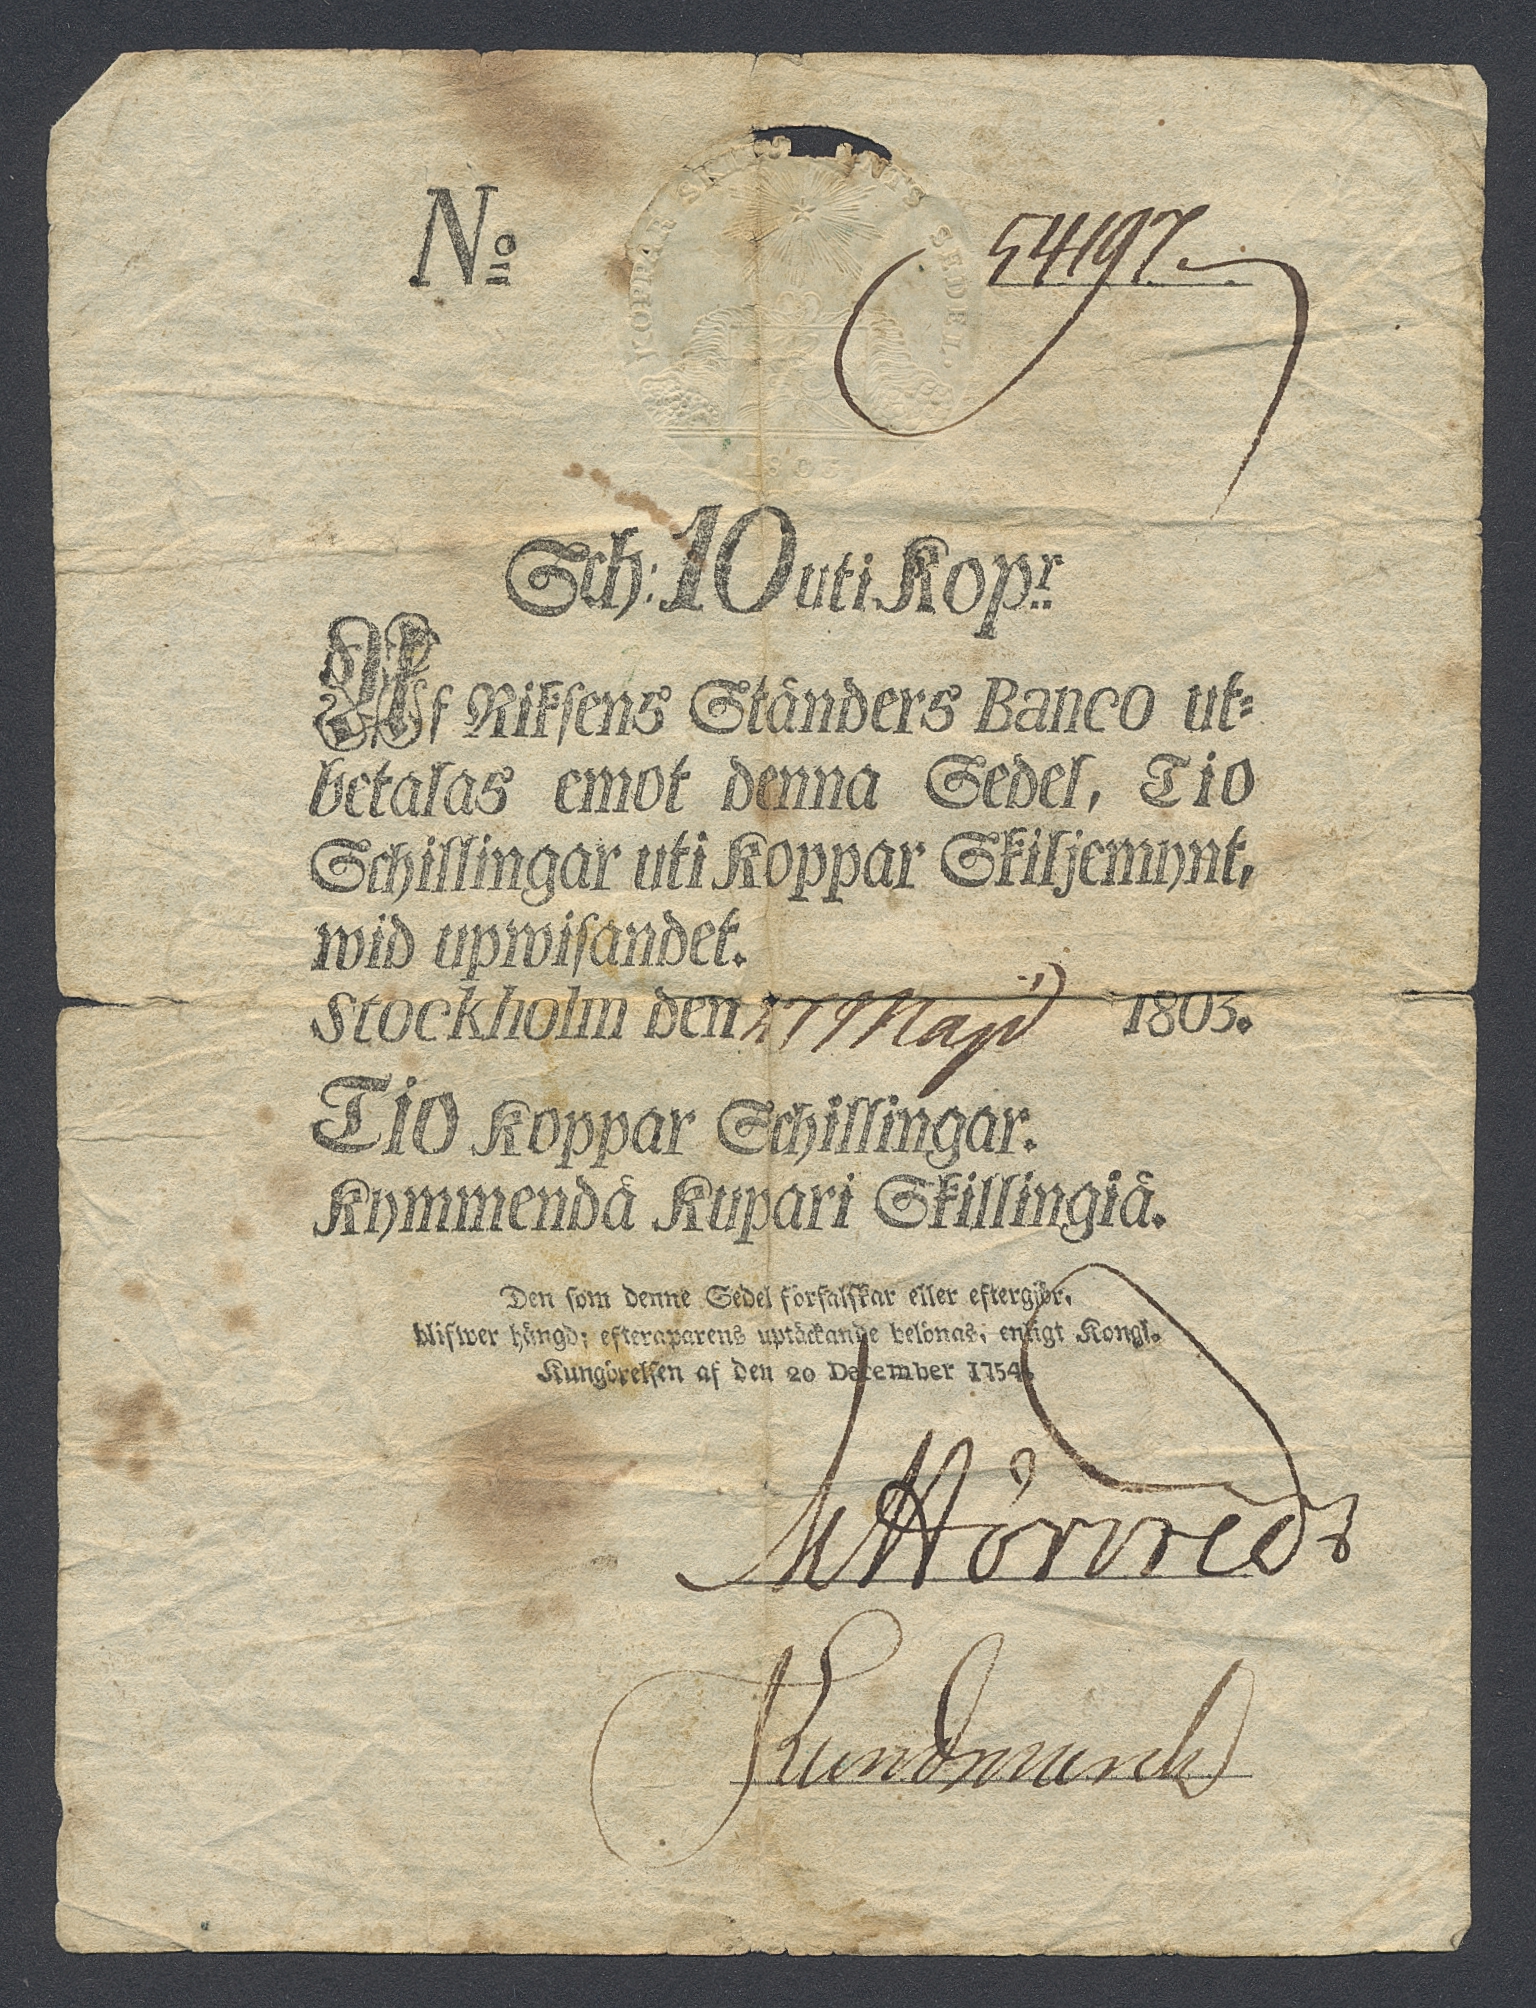 KOPPAR SKILJEMYNTS SEDEL.
No 54197.
1803
Sch: 10 uti Kopr
Af Riksens Ständers Banco ut-
betalas emot denna Sedel, Tio
Schillingar uti Koppar Skiljemynt,
wid upwisandet.
Stockholm den 27 Maji 1803.
Tio Koppar Schillingar.
Kymmendå Kupari Skillingiå.
Den som denne Sedel förfalskar eller eftergiör,
blifwer hängd; efteraparens uptäckande belönas, enligt Kongl.
Kungörelsen af den 20 December 1754.